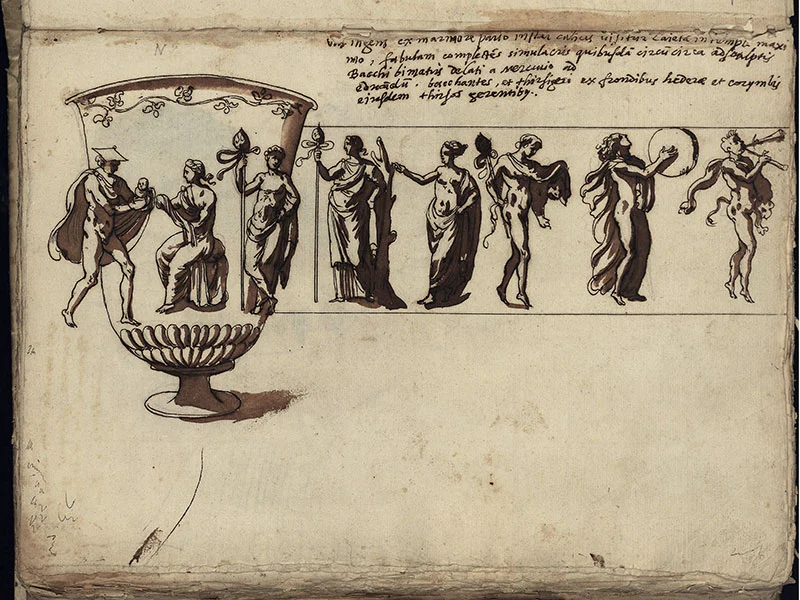 N
ingens ex marmore pario instar calicis visitur Caietæ in templo maxi
mo, fabulam complectēs simulacris quibusdā circū circa adsculptis
Bacchi bimatris delati a mercurio ad
bacchantes, et thirsigeri ex frondibus hederæ et corymbis
eiusdem thirsos gerentiby.